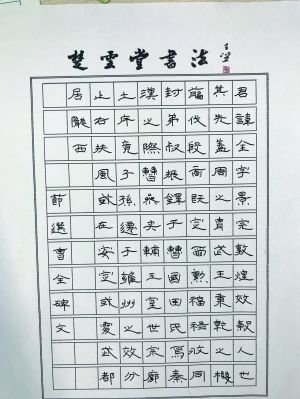 楚雲堂書法
君諱全字景完敦煌效穀人也
其先蓋周之胄武王秉乾之機
翦伐殷商既定爾勳福祿攸同
封弟叔振鐸于曹國因氏焉秦
漢之際曹參夾輔王室世宗廓
土斥竟子孫遷于雍州之郊分
止右扶風或在安定或處武都
居隴西
節選曹全碑文